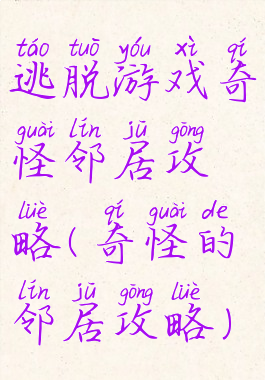 táo tuō yóu xì qí
逃脱游戏奇
guài lín jū gōng
怪邻居攻
lüè qí guài de
略(奇怪的
lín jū gōng lüè
邻居攻略)